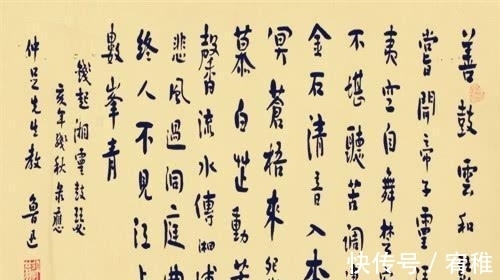 善鼓雲和
嘗聞帝子靈
夷空自舞楚
不堪聽苦調
金石清音入杳
冥蒼梧來怨
慕白芷動芳
馨流水傳湘浦
悲風過洞庭曲
終人不見江上
數峯青
錢起湘靈鼓瑟
亥年殘秋录應
仲足先生教 魯迅
快传号 / 宥稚